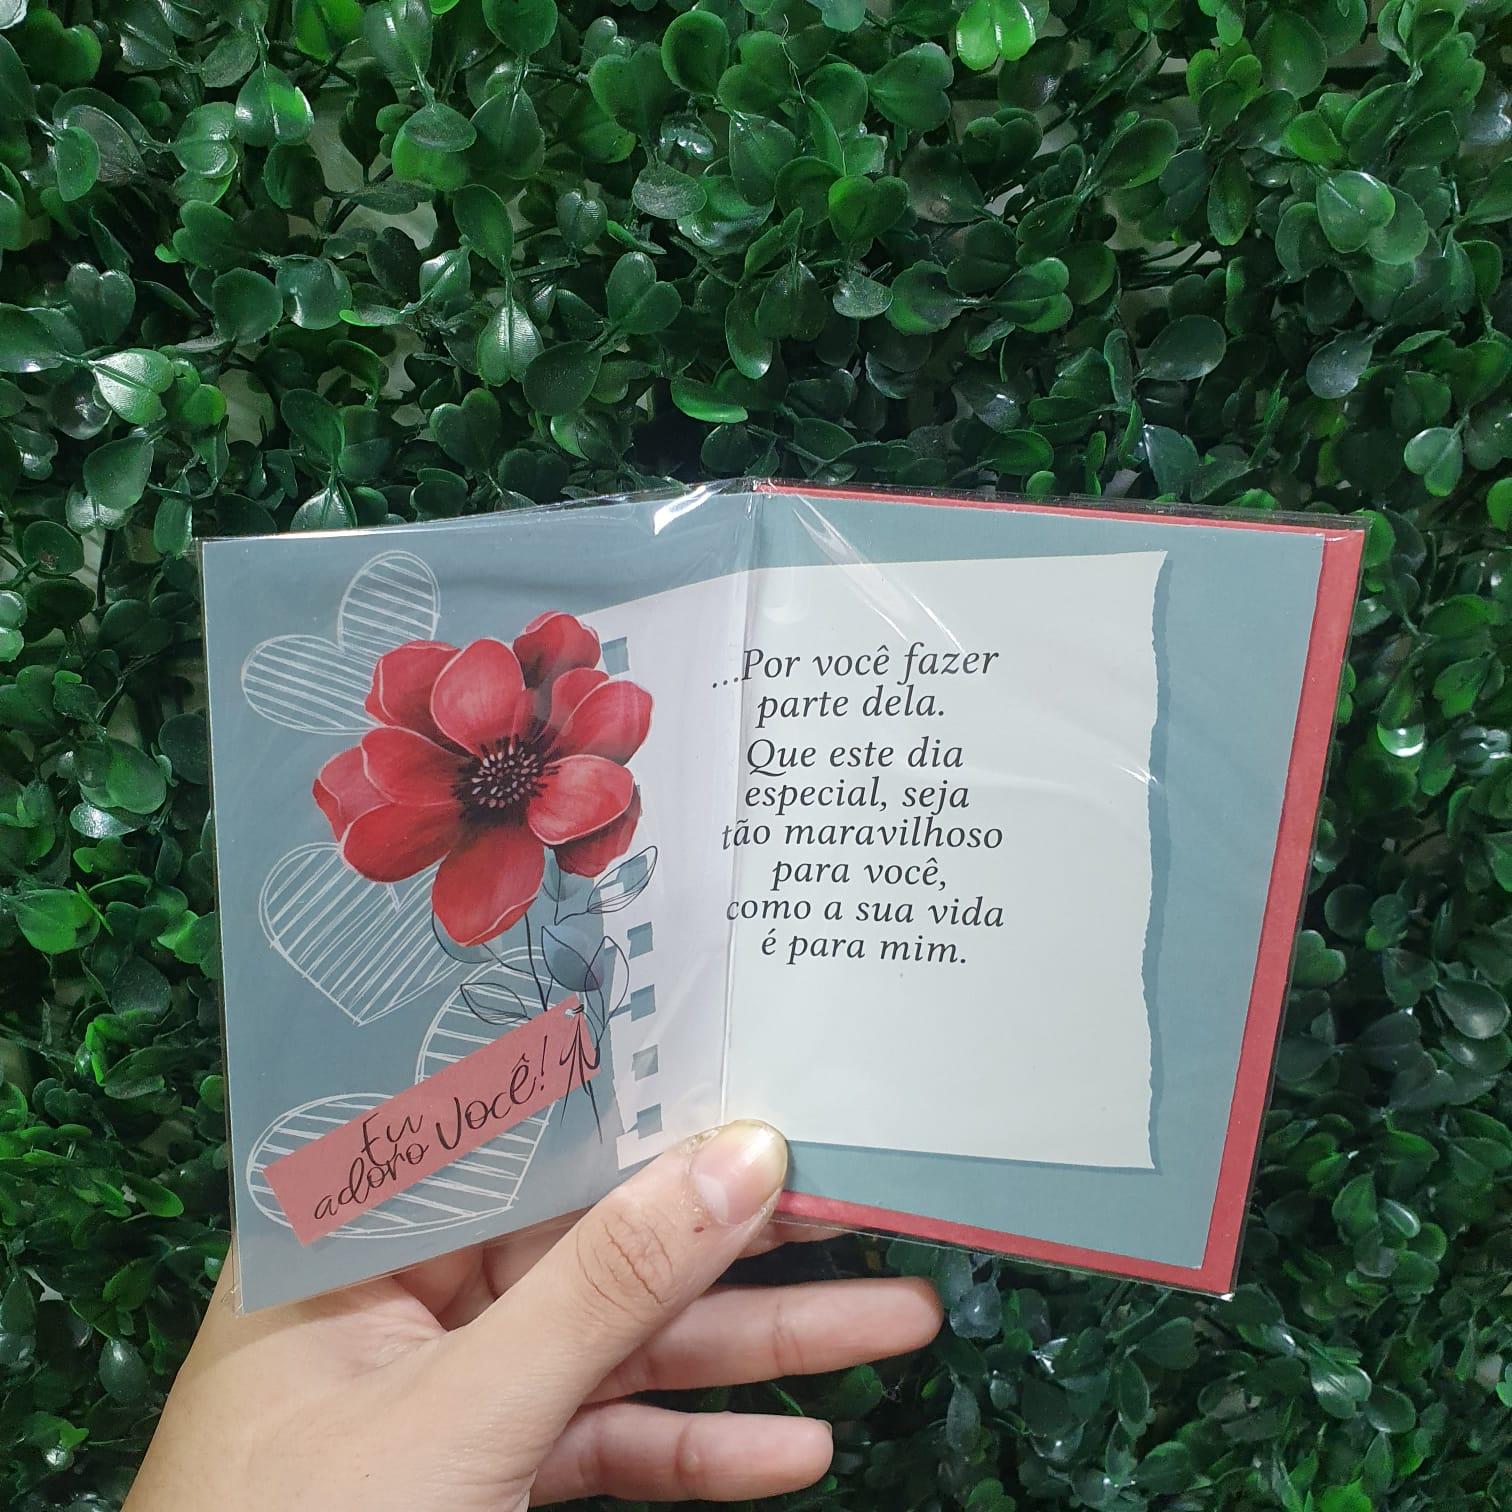 Eu
adoro Você!
...Por você fazer
parte dela.
Que este dia
especial, seja
tão maravilhoso
para você,
como a sua vida
é para mim.